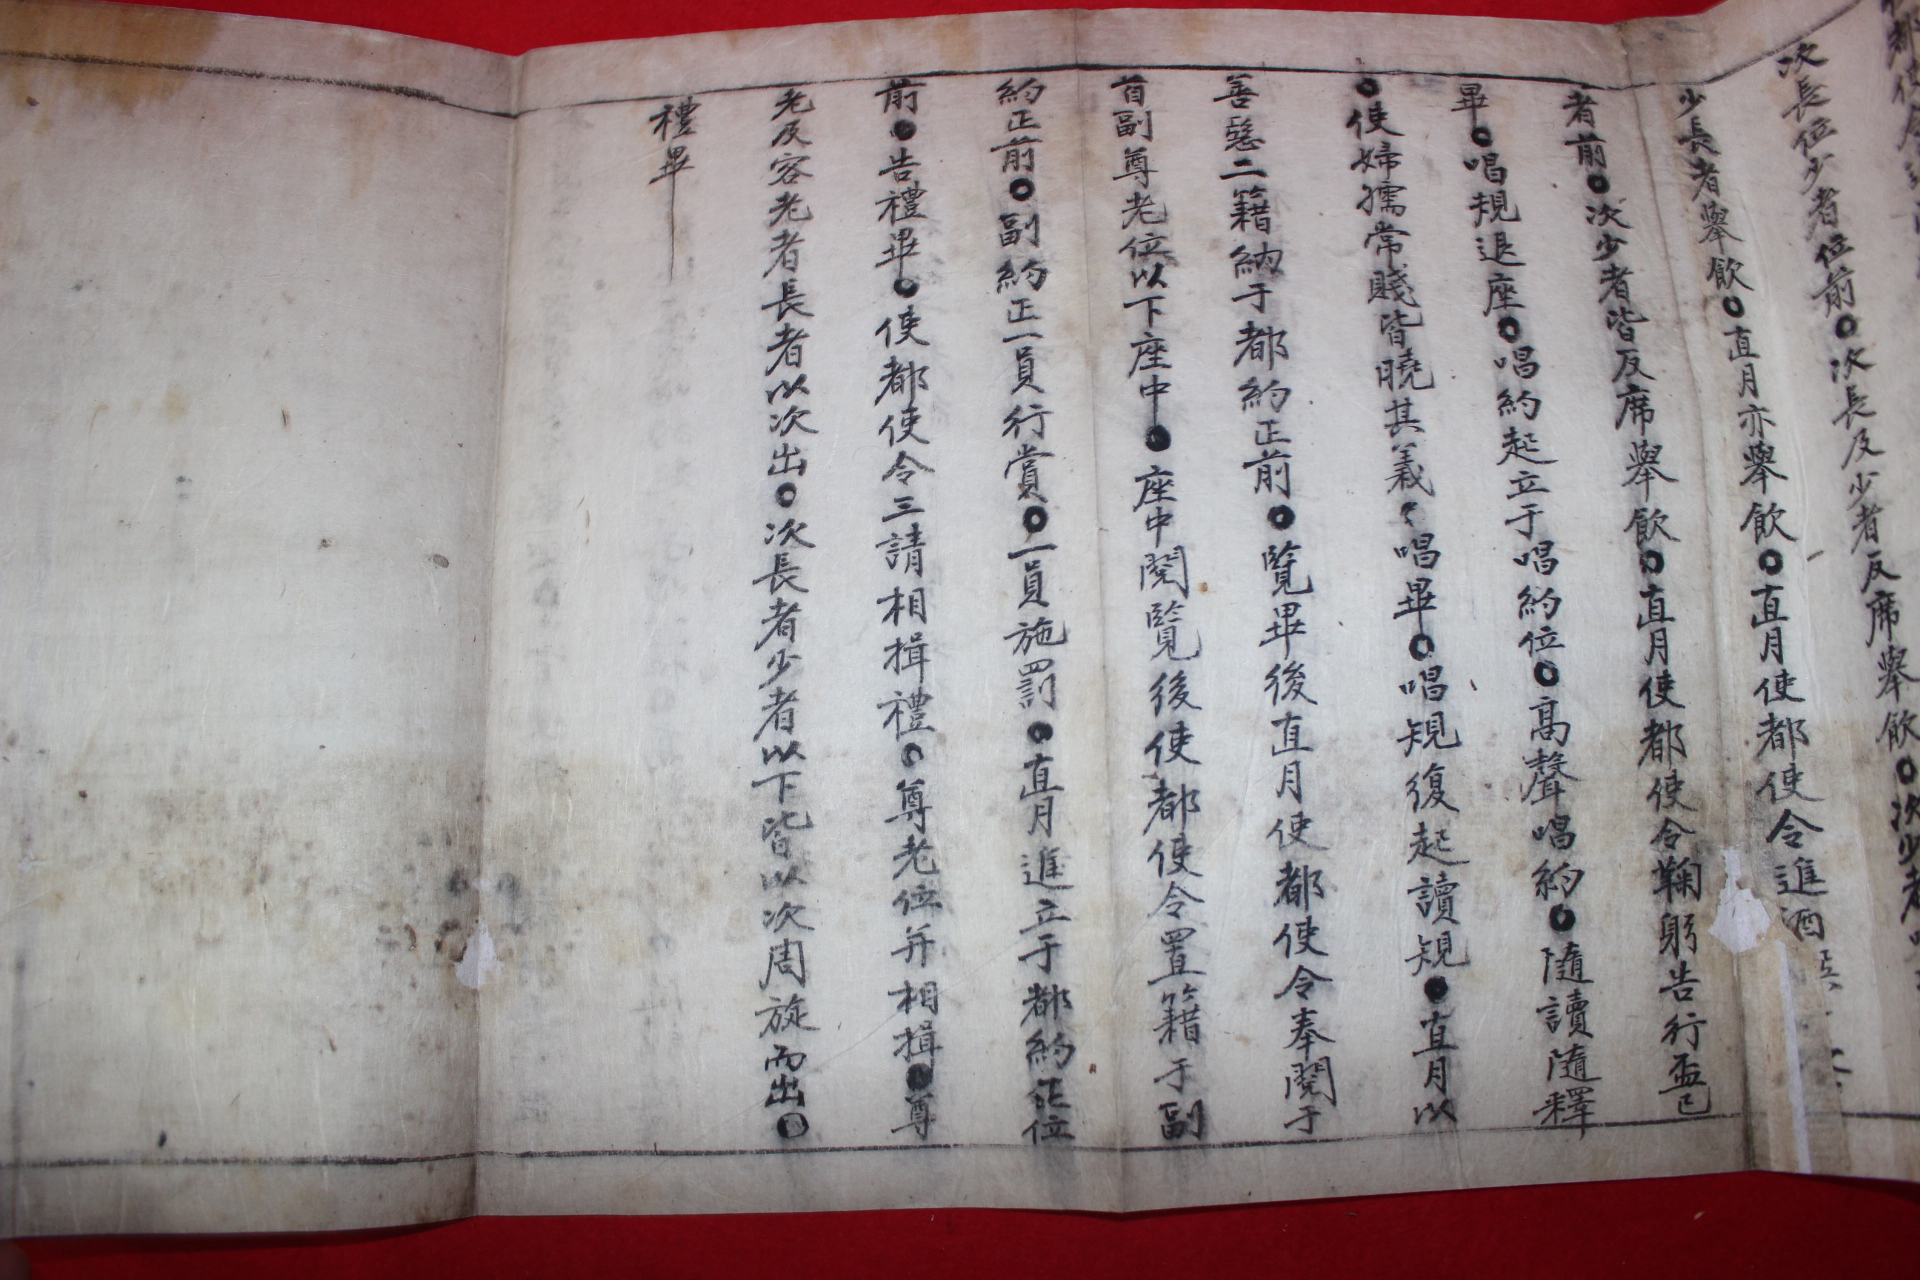 次長位少者位前○次長及少者反席舉飮○次少老
少長者舉飮○直月亦舉飮○直月使都使令進酒
者前○次少者皆反席舉飮○直月使都使令鞠躬告行盃已
畢○唱規退座○唱約起立于唱約位○高聲唱約○隨讀隨釋
○使婦孺常賤皆曉其義○唱畢○唱規復起讀規○直月以
善惡二籍納于都約正前○覽畢後直月使都使令奉閱于
首副尊老位以下座中○座中閱覽後使都使令置籍于副
約正前○副約正一員行賞○一員施罰○直月進立于都約正位
前○告禮畢○使都使令三請相揖禮○尊老位并相揖○尊
老及容老者長者以次出○次長者少者以下皆以次周旋而出○
禮畢